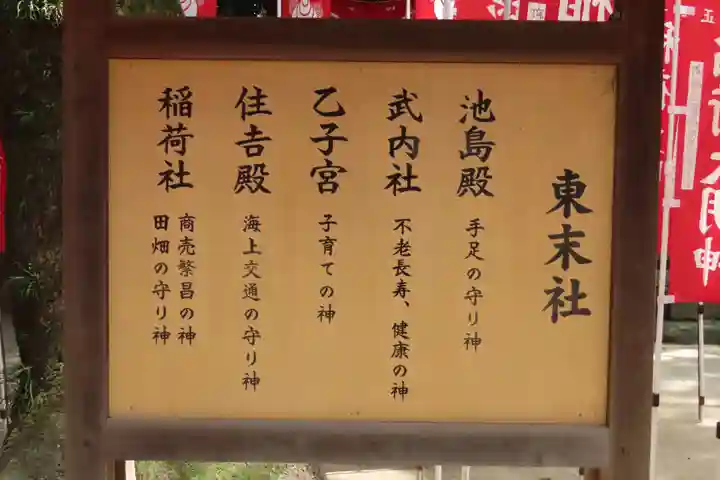 東末社
池島殿
手足の守り神
武内社
不老長寿、健康の神
乙子宮
子育ての神
住吉殿
海上交通の守り神
稲荷社
商売繁昌の神
田畑の守り神